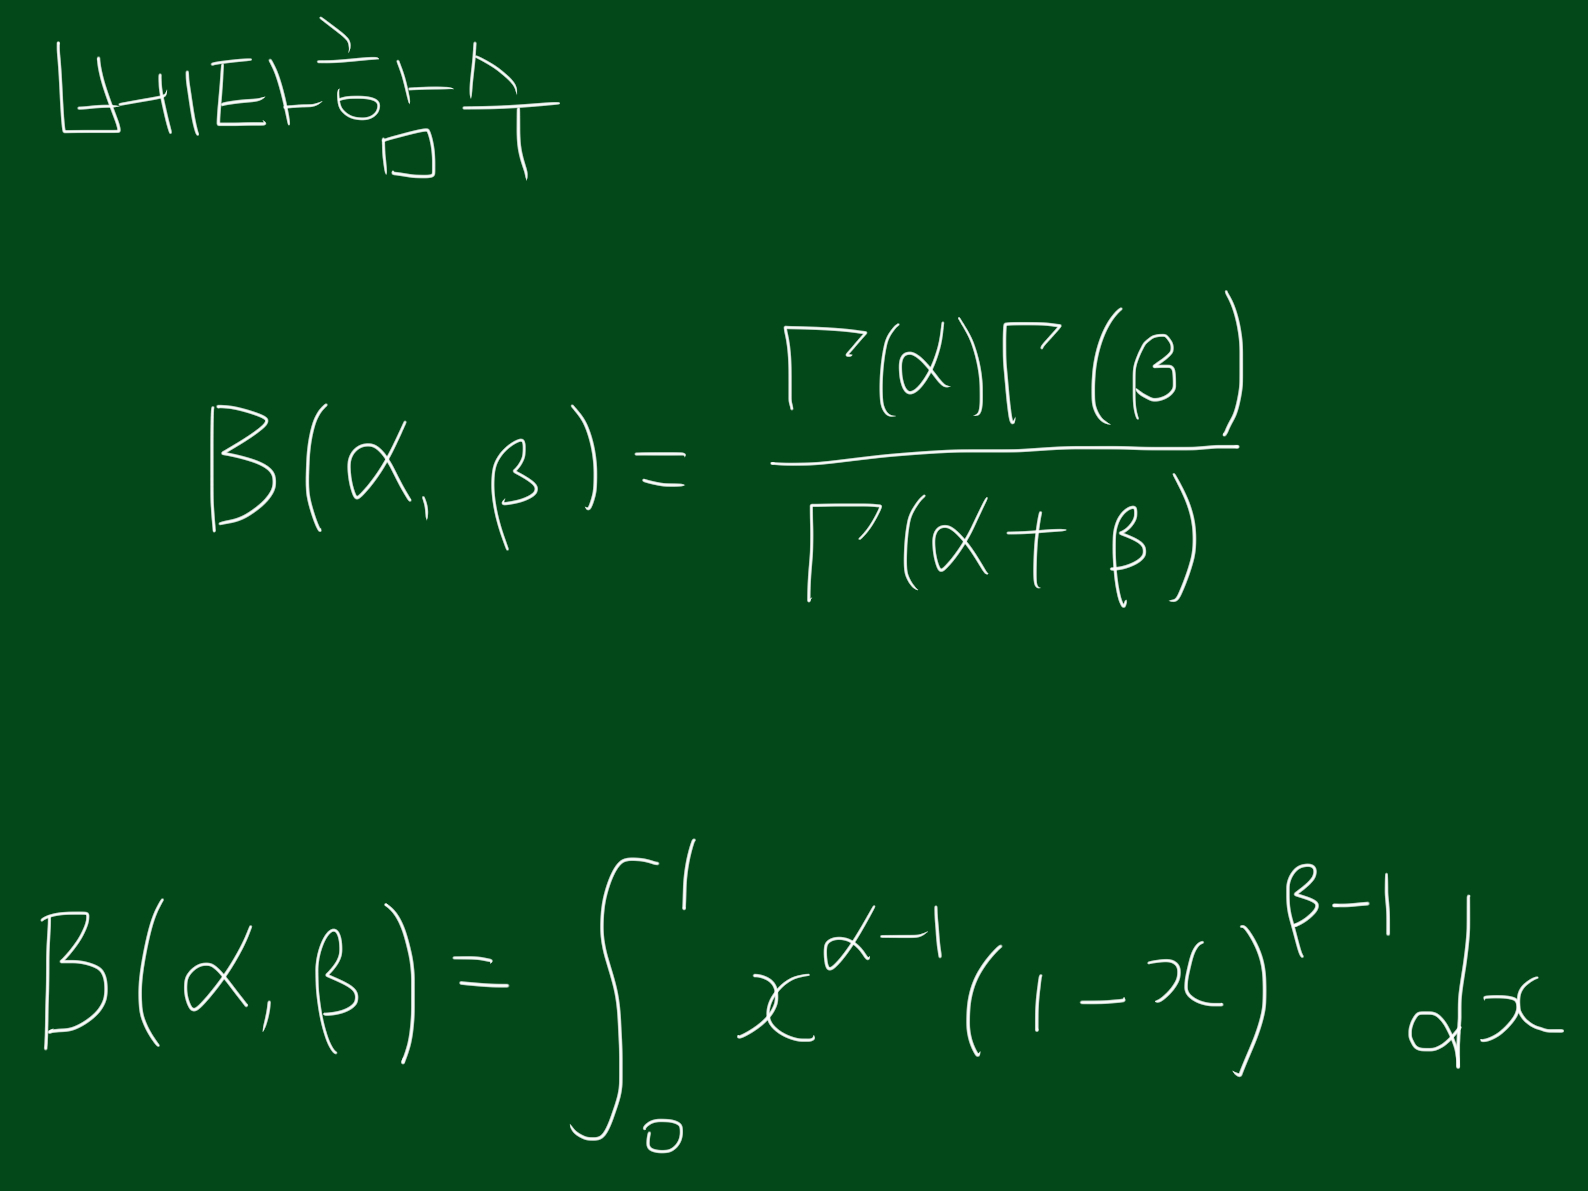 베타함수
B(α, β) = Γ(α)Γ(β) / Γ(α + β)
B(α, β) = ∫₀¹ x^(α-1) (1-x)^(β-1) dx